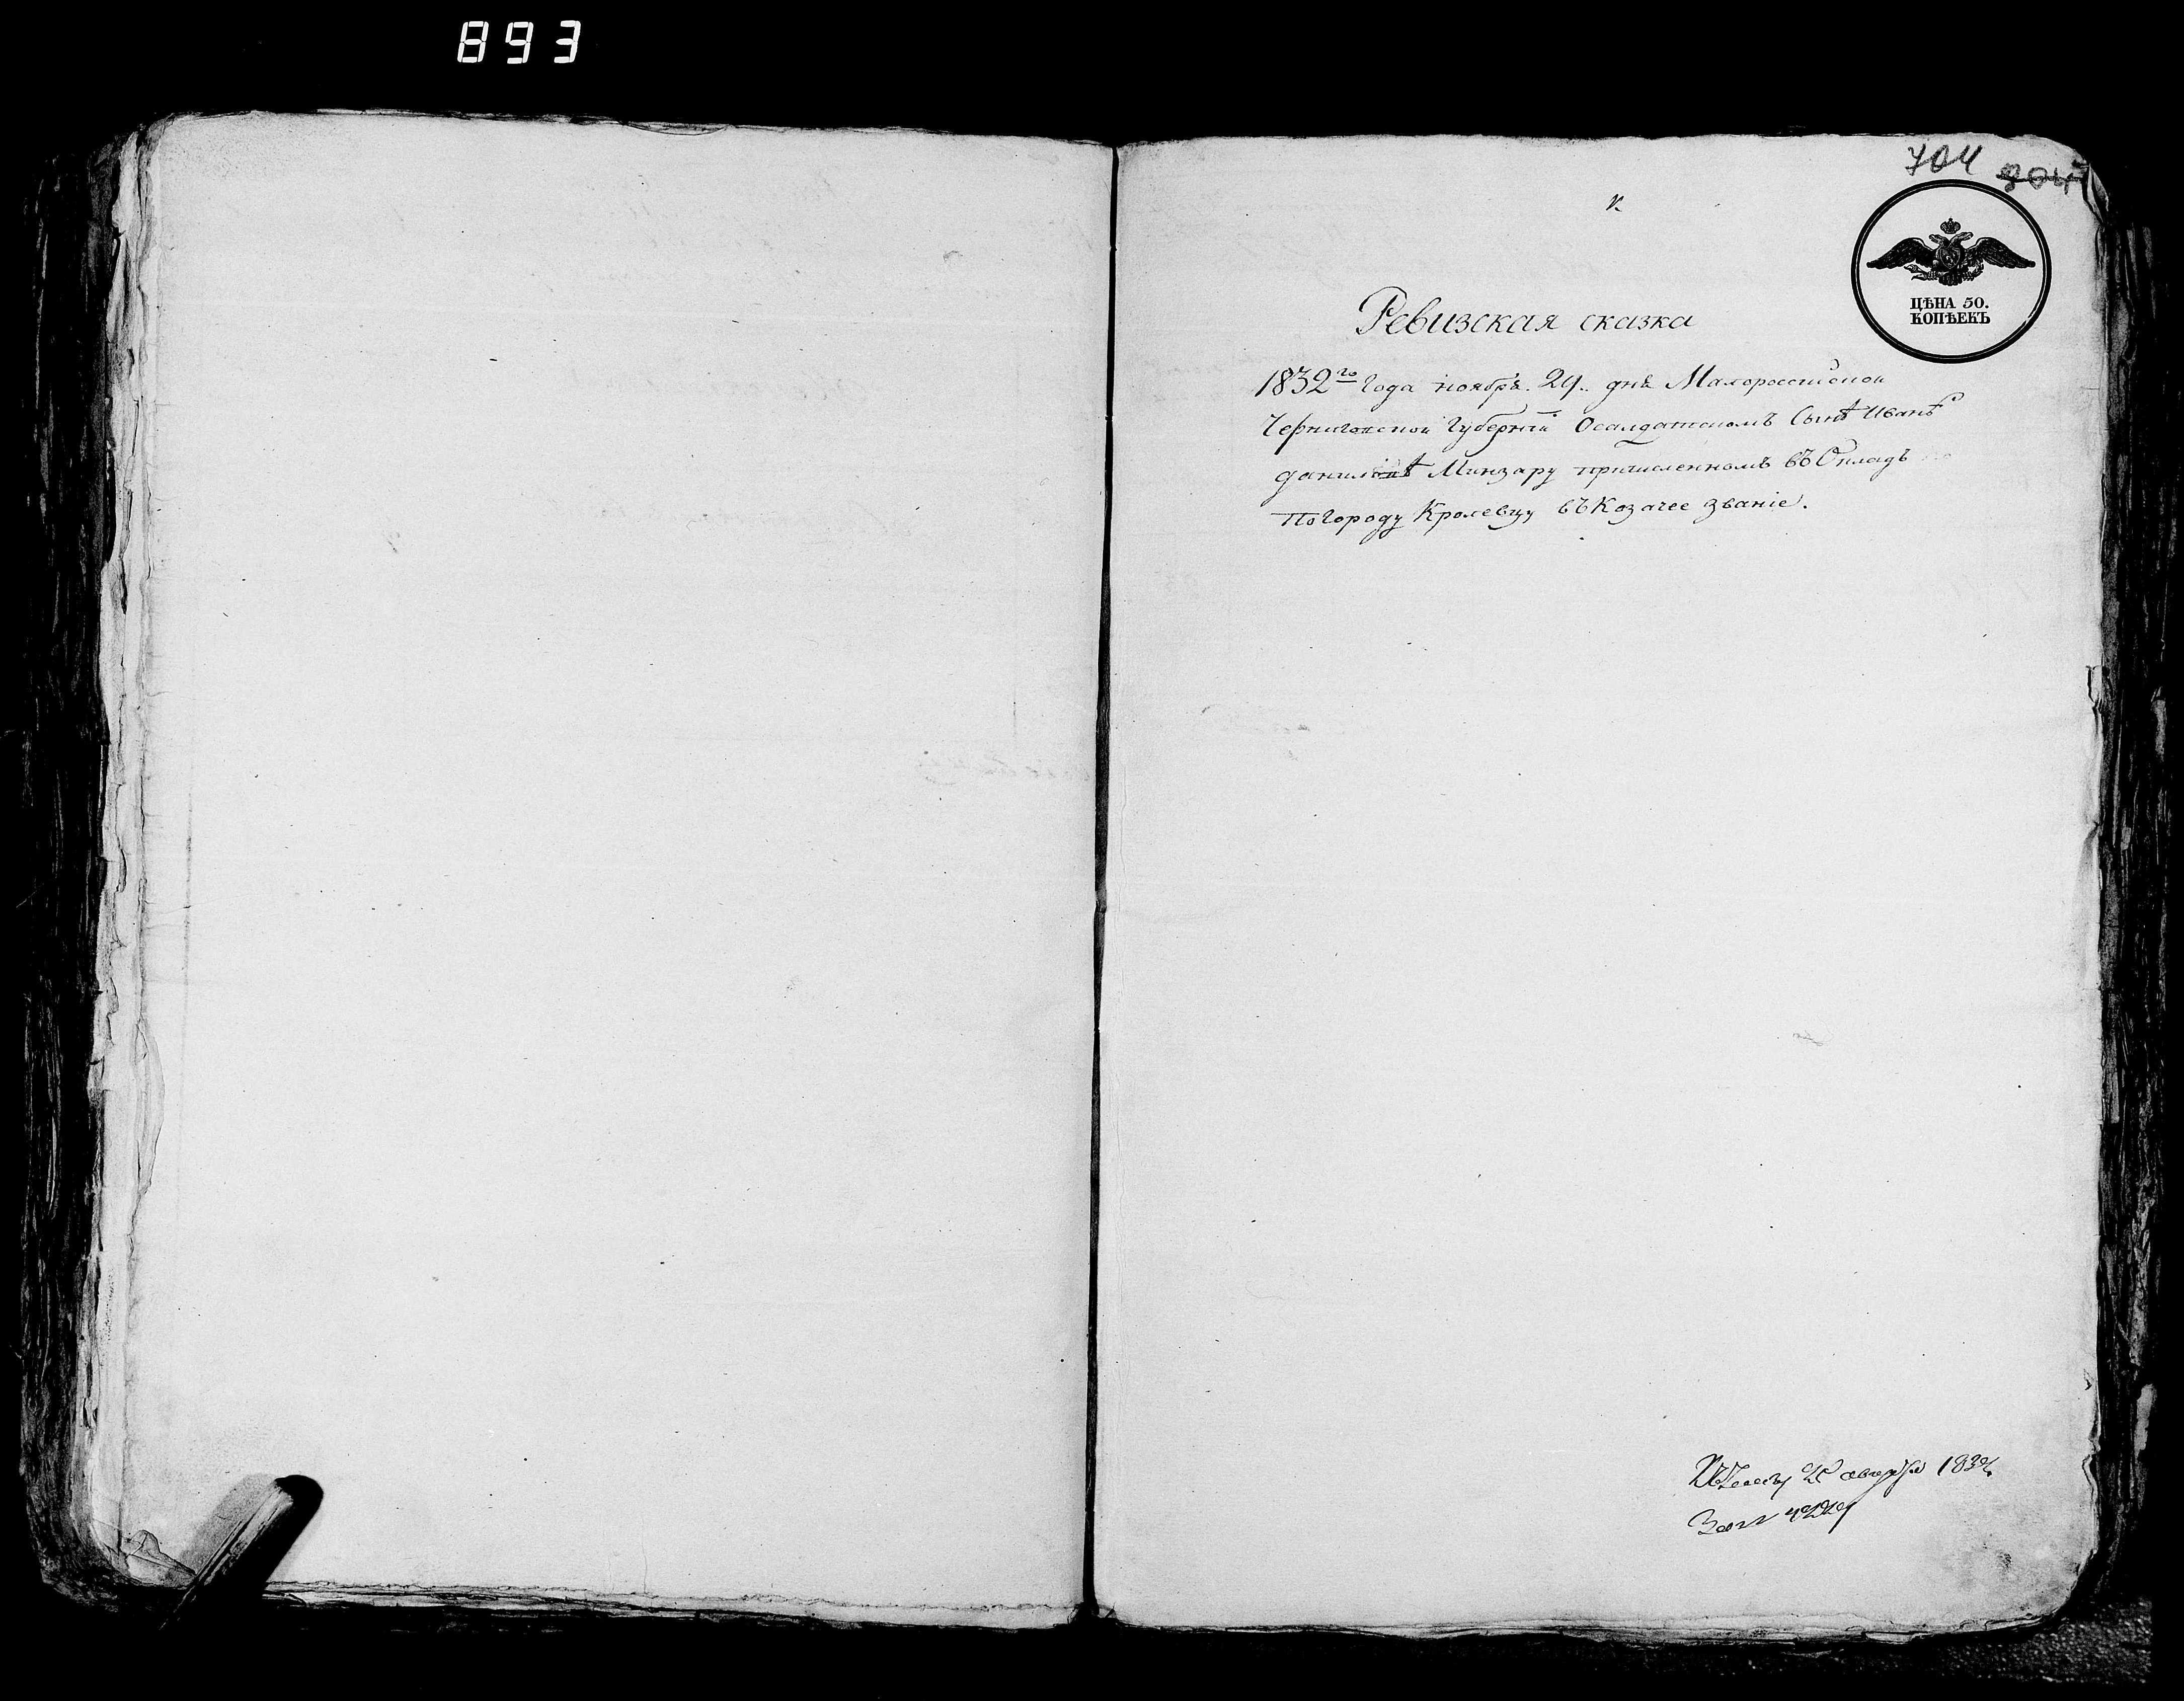 893
704
804
ЦѢНА 50.
КОПѢЕКЪ
Ревизская сказка
1832го Года ноябрѣ. 29. днѣ Малороссійской
Черниговской Губерніи Осалдатскомъ Сынѣ Иванѣ
данилові Минзару причисленномъ въ Окладъ
По городу Кролевцу въ Козачее званіе.
1834